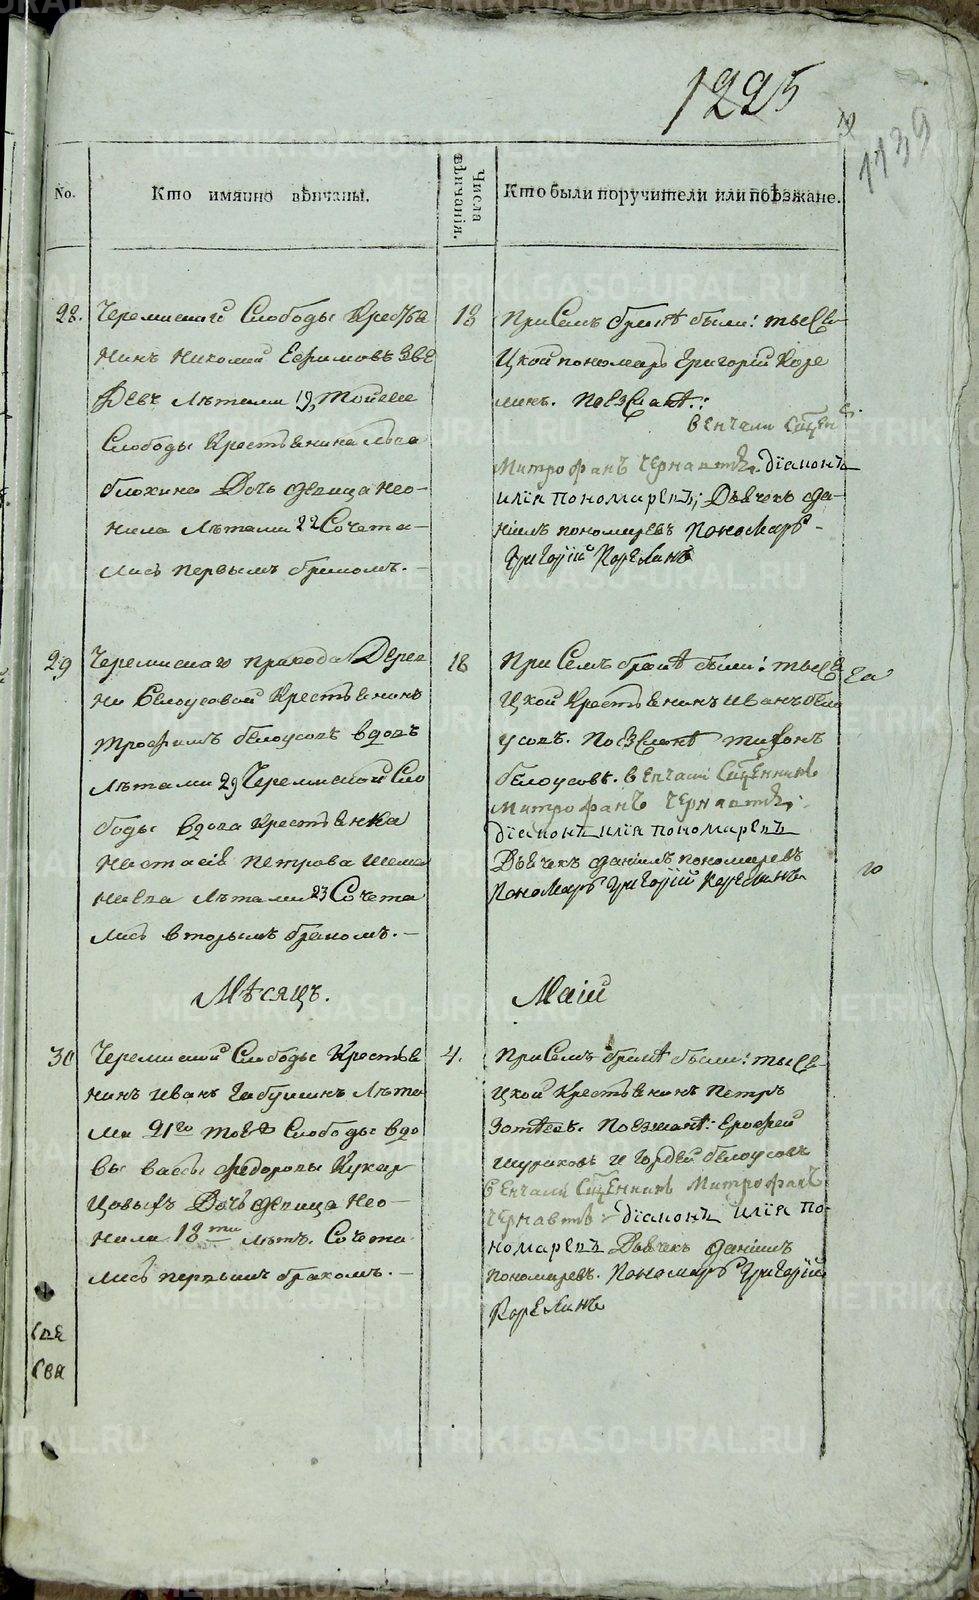 1225
19
1139
No.
Кто имянно вѣнчаны.
Числа вѣнчанія.
Кто были поручители или поѣзжане.
28.
Черемиской Слободы Кресть
янинъ Николай Ефимовъ
Лѣтами 19, Тойже
Слободы Крестьянина
Блохина Дочь девица Нео-
нила Лѣтами 22 Сочета-
лись первымъ бракомъ.
18
При Семъ бракѣ были: тысе
цкой пономарь Григорій Коре
линъ. Поезжане:
венчали Сщен
Митрофанъ Чернавинъ. Діаконъ
Илія Пономаревъ, Дьячекъ Да-
ніилъ пономаревъ Пономарь
Григорій Корелинъ
29
Черемискаго прихода Дерев
ни Белоусовой Крестьянинъ
Трофимъ белоусовъ вдовъ
Лѣтами 29 Черемиской Сло
боды вдова Крестьянка
Настасія Петрова
Лѣтами 23 Сочета
лись вторымъ бракомъ.
18
При Семъ бракѣ были: тысе
цкой Крестьянинъ Иванъ бело
усовъ. Поезжане тихонъ
белоусовъ. венчали Сщенникъ
Митрофанъ Чернавинъ,
Діаконъ Илія Пономаревъ
Дьячекъ Даніилъ пономаревъ
Пономарь Григорій Корелинъ
Мѣсяцъ.
Маій
30
Черемиской Слободы Крестья
нинъ Иванъ Лѣта
ми 21го тоя Слободы вдо
вы вассы федоровы Кукар
цовыхъ Дочь девица Нео-
нила 18ти лѣтъ. Сочета
лись первымъ бракомъ.
4.
При Семъ бракѣ были: тысе
цкой Крестьянинъ Петръ
Зотеевъ. Поезжане: Ерофей
и Гордей белоусовъ
венчали Сщенникъ Митрофанъ
Чернавинъ Діаконъ Илія По-
номаревъ Дьячекъ Даніилъ
пономаревъ. Пономарь Григорій
Корелинъ